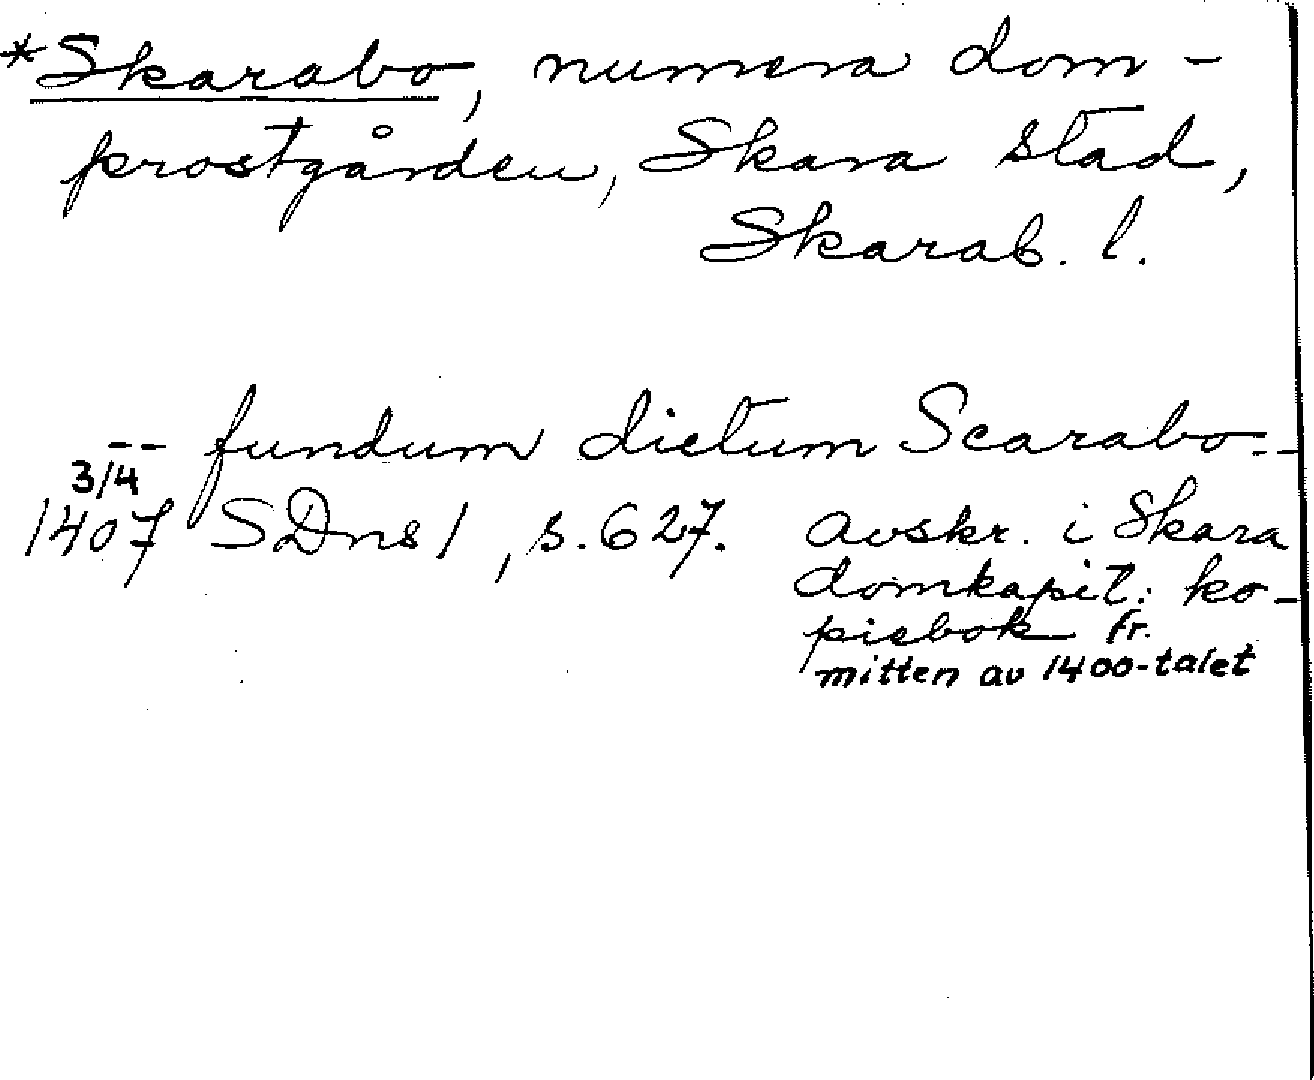 *Skarabo, numera dom-
prostgården, Skara stad,
Skarab. l.
-- fundum dictum Scarabo --
3/4
1407 SDns 1, s. 627. Avskr. i Skara
domkapit:s ko-
piebok fr.
mitten av 1400-talet